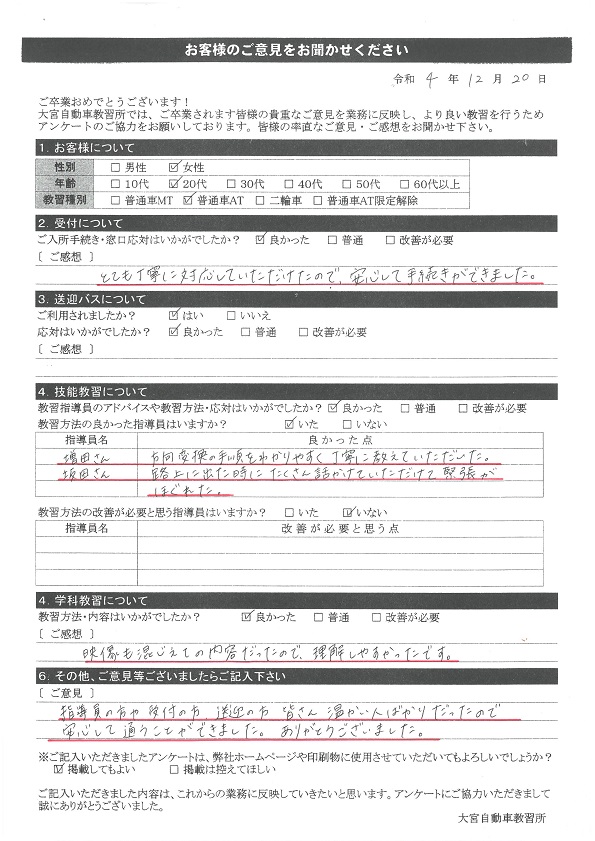 お客様のご意見をお聞かせください
令和 4 年 12 月 20 日
ご卒業おめでとうございます！
大宮自動車教習所では、ご卒業されます皆様の貴重なご意見を業務に反映し、より良い教習を行うため
アンケートのご協力をお願いしております。皆様の率直なご意見・ご感想をお聞かせ下さい。
1. お客様について
性別 □ 男性 ☑ 女性
年齢 □ 10代 ☑ 20代 □ 30代 □ 40代 □ 50代 □ 60代以上
教習種別 □ 普通車MT ☑ 普通車AT □ 二輪車 □ 普通車AT限定解除
2. 受付について
ご入所手続き・窓口応対はいかがでしたか？ ☑ 良かった □ 普通 □ 改善が必要
〔 ご感想 〕
とても丁寧に対応していただけたので、安心して手続きができました。
3. 送迎バスについて
ご利用されましたか？ ☑ はい □ いいえ
応対はいかがでしたか？ ☑ 良かった □ 普通 □ 改善が必要
〔 ご感想 〕
4. 技能教習について
教習指導員のアドバイスや教習方法・応対はいかがでしたか？ ☑ 良かった □ 普通 □ 改善が必要
教習方法の良かった指導員はいますか？ ☑ いた □ いない
指導員名 良かった点
増田さん 方向変換の手順をわかりやすく丁寧に教えていただいた。
坂田さん 路上に出た時にたくさん話かけていただけて緊張が
ほぐれた。
教習方法の改善が必要と思う指導員はいますか？ □ いた ☑ いない
指導員名 改善が必要と思う点
4. 学科教習について
教習方法・内容はいかがでしたか？ ☑ 良かった □ 普通 □ 改善が必要
〔 ご感想 〕
映像も混じえての内容だったので、理解しやすかったです。
6. その他、ご意見等ございましたらご記入下さい
〔 ご意見 〕
指導員の方や受付の方 送迎の方 皆さん温かい人ばかりだったので
安心して通うことができました。ありがとうございました。
※ご記入いただきましたアンケートは、弊社ホームページや印刷物に使用させていただいてもよろしいでしょうか？
☑ 掲載してもよい □ 掲載は控えてほしい
ご記入いただきました内容は、これからの業務に反映していきたいと思います。アンケートにご協力いただきまして
誠にありがとうございました。
大宮自動車教習所